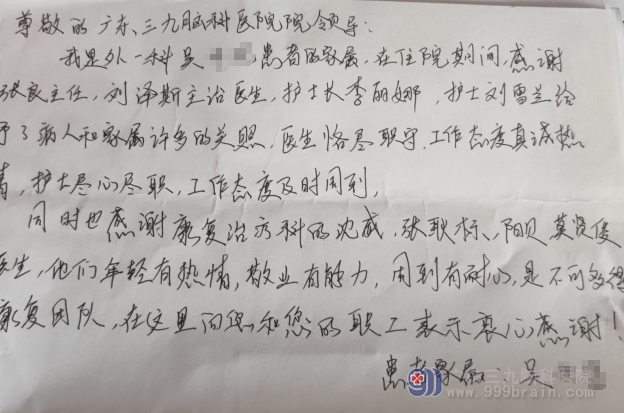 尊敬的广东三九脑科医院院领导：
我是外一科吴 患者的家属，在住院期间，感谢
张良主任，刘泽斯主治医生，护士长李丽娜，护士刘雪兰给
予了病人和家属许多的关照，医生恪尽职守，工作态度真诚热
情，护士尽心尽职，工作态度及时周到，
同时也感谢康复治疗科的沈威，张耿标、阳贝 莫贤俊
医生，他们年轻有热情，敬业有能力，周到有耐心，是不可多得
康复团队，在这里向您和您的职工表示衷心感谢！
患者家属 吴
三九脑科医院
www.999brain.com